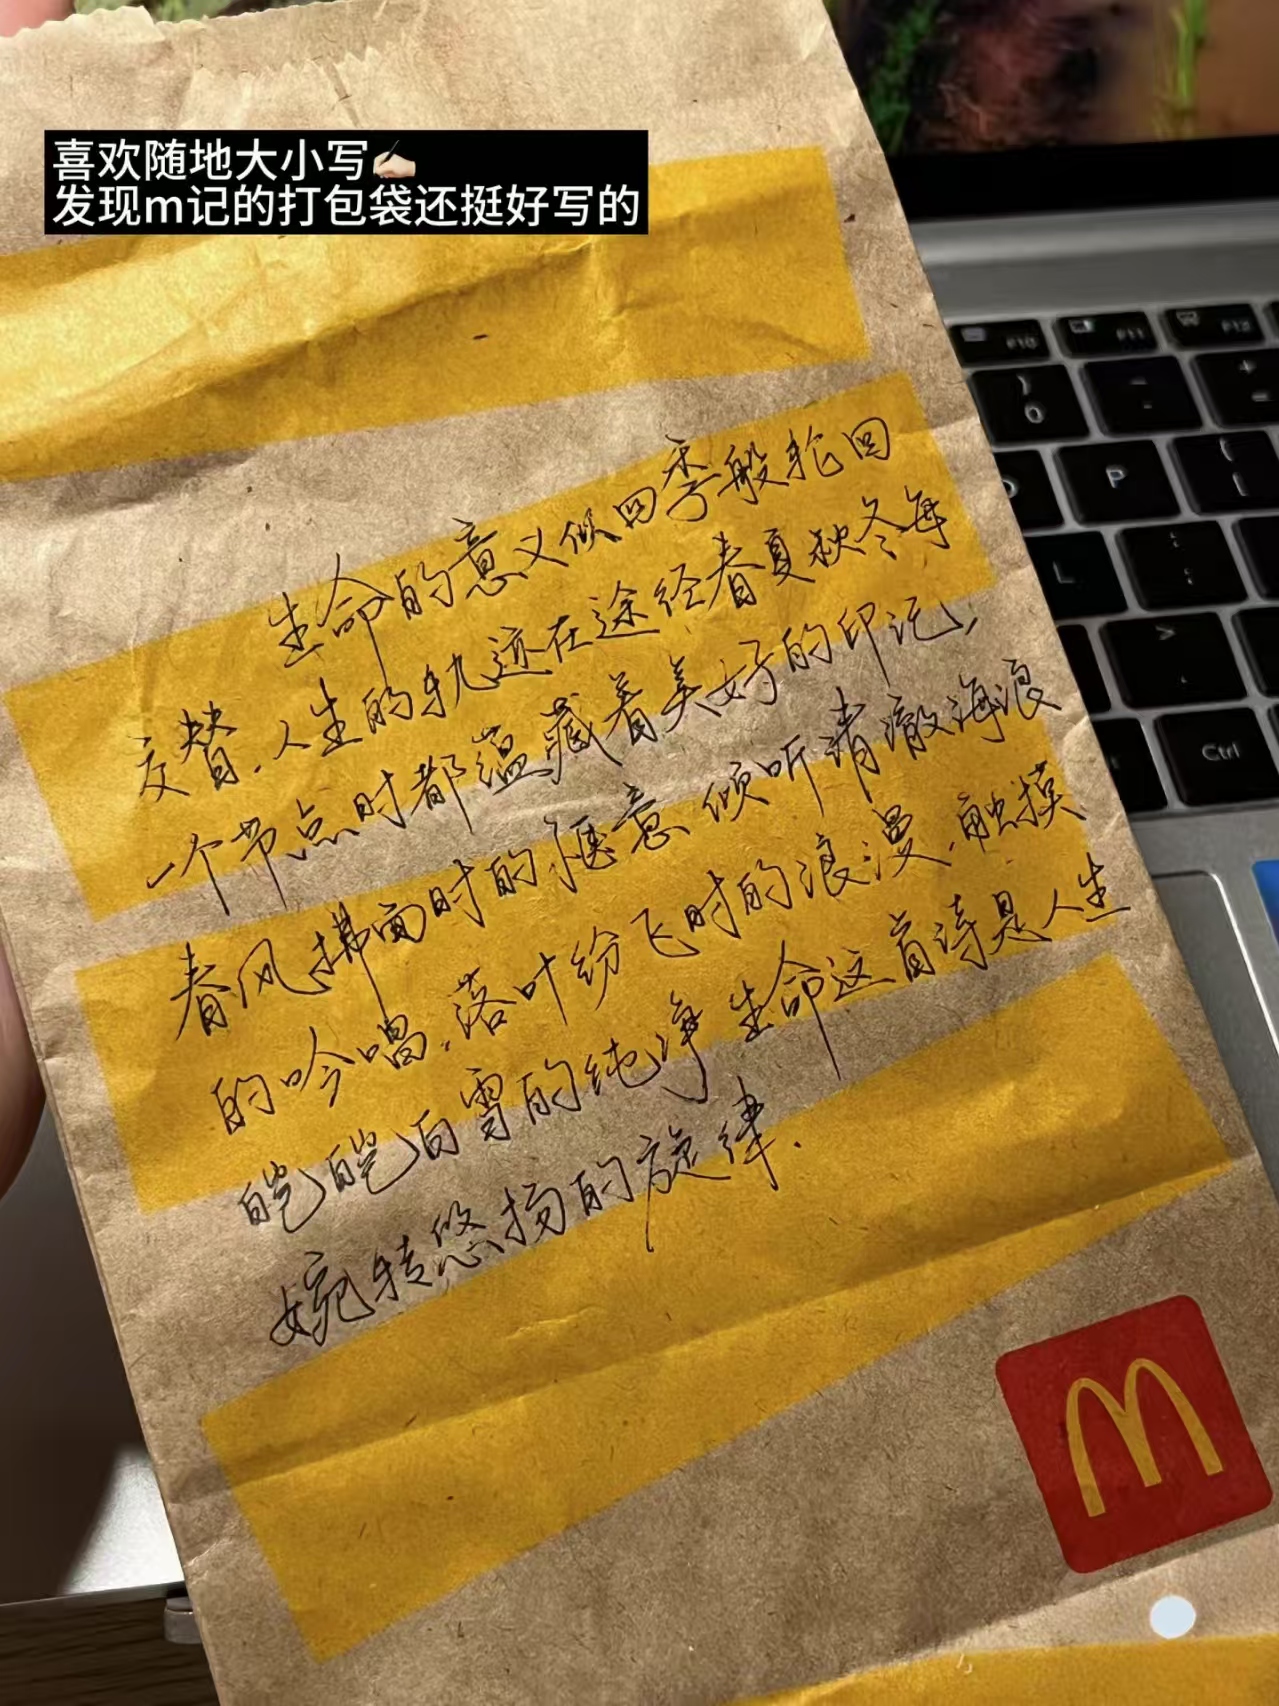 喜欢随地大小写✍🏻
发现m记的打包袋还挺好写的
生命的意义似四季般轮回
交替.人生的轨迹在途经春夏秋冬每
一个节点时都蕴藏着美好的印记,
春风拂面时的惬意.倾听清澈海浪
的吟唱.落叶纷飞时的浪漫.触摸
皑皑白雪的纯净 生命这首诗是人生
婉转悠扬的旋律.
F10
F11
F12
)
0
-
+
=
P
{
[
L
>
Ctrl
M